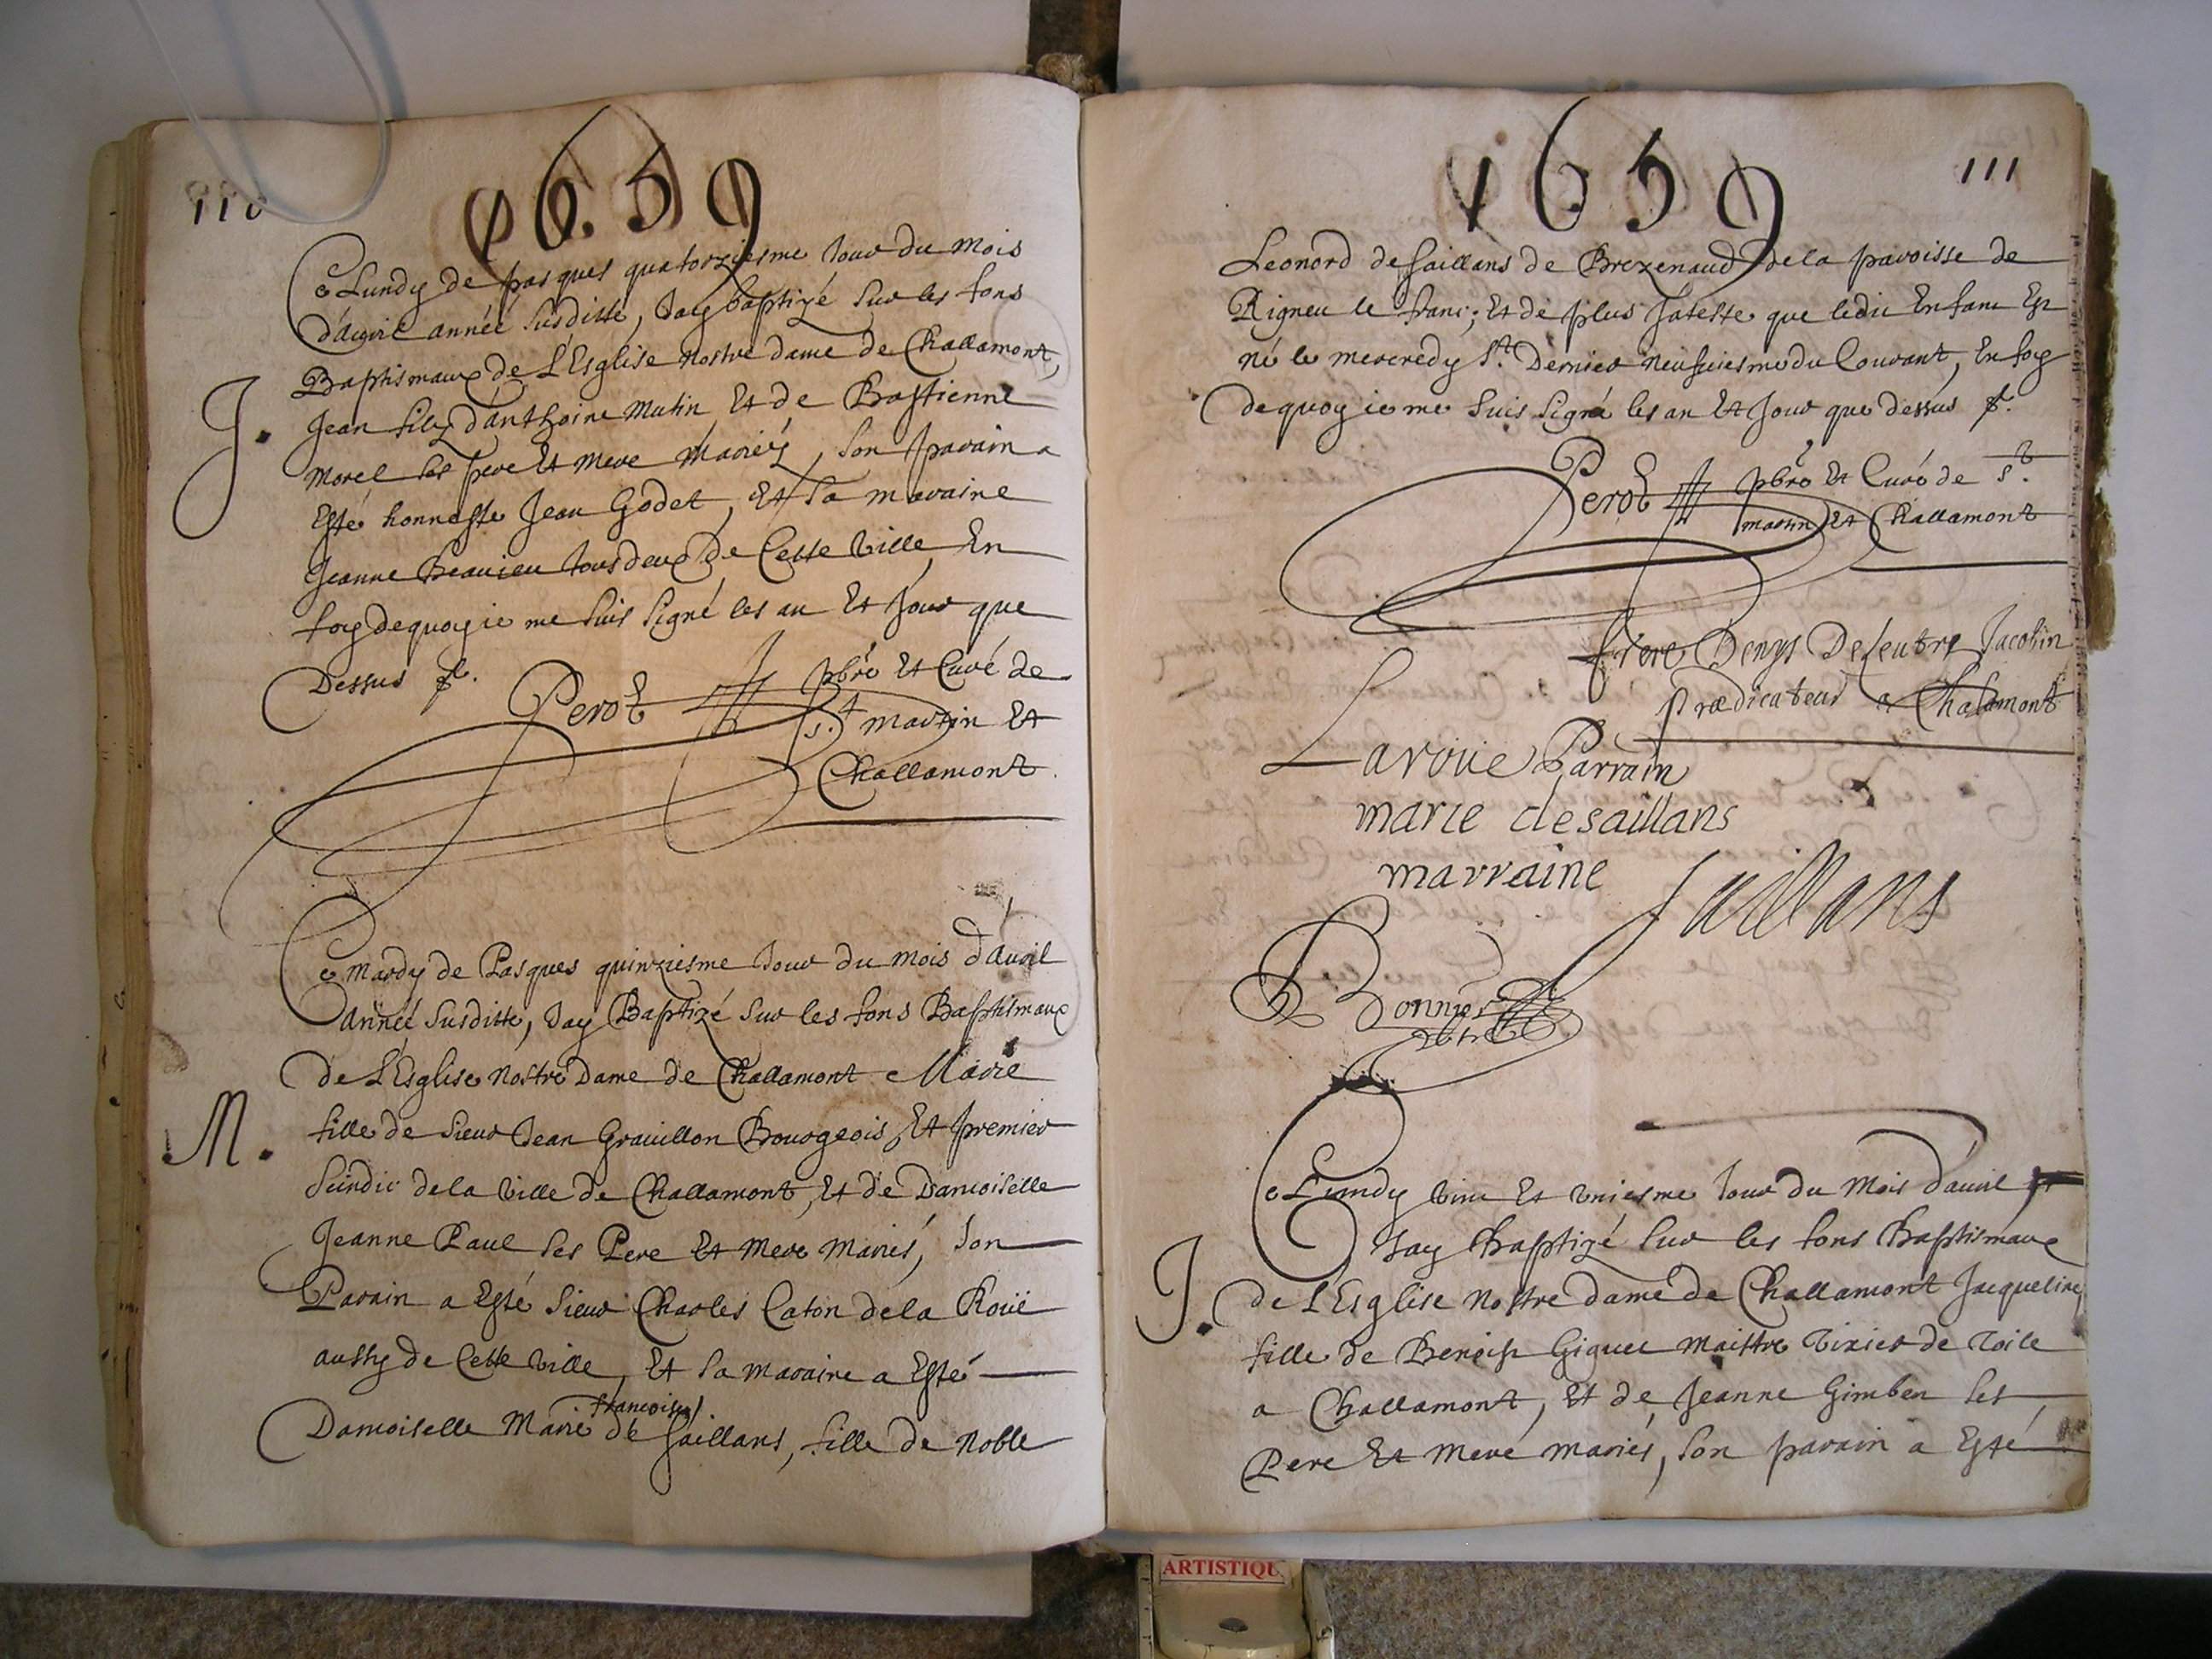 110
1659
Ce Lundy de pasques quatorziesme Jour du mois
d'auvril année susditte, J'ay baptizé sur les fons
Baptismaux de L'Esglise nostre dame de Challamont,
J.
Jean filz d'anthoine Mutin Et de Bastienne
Morel ses pere Et mere Mariéz, son parain a
Esté honneste Jean Godet, Et sa maraine
Jeanne Beauieu tous deux de Cette Ville, En
foy dequoy ie me suis signé les an Et Jour que
Dessus
Perot pbre Et Curé de
St. martin Et
Challamont.
Ce mardy de Pasques quinziesme Jour du mois d'Auril
année susditte, J'ay Baptizé sur les fons Baptismaux
de L'Esglise Nostre Dame de Challamont Marie
M.
fille de sieur Jean Grauillon Bourgeois, Et premier
Scindic de la Ville de Challamont, Et de Damoiselle
Jeanne Paul ses Pere Et Mere Mariés, son
Parain a Esté Sieur Charles Caton de la Roüe
aussy de Cette Ville, Et sa maraine a Esté
francoise
Damoiselle Marie de Saillans, fille de Noble
1659
111
Leonord de saillans de Brezenaud de la paroisse de
Rigneu le franc; Et de plus J'ateste que ledic Enfant Est
né le mercredy St. Dernier neufuiesme du Courant, En foy
dequoy ie me suis signé les an Et Jour que dessus
Perot pbre Et Curé de St.
martin Et Challamont
frere Denys Deseutre Jacobin
prædicateur a Chalamont
Laroüe Parrain
marie desaillans
marraine
Saillans
Bonnier
Ce Lundy vint Et vniesme Jour du Mois d'auril
J'ay Baptizé sur les fons Baptismaux
J.
de L'Esglise Nostre dame de Challamont Jacqueline,
fille de Benoist Giguet Maistre Tixier de Toile
a Challamont, Et de Jeanne Gimben ses
Pere Et Mere mariés, son parain a Esté
ARTISTIQU